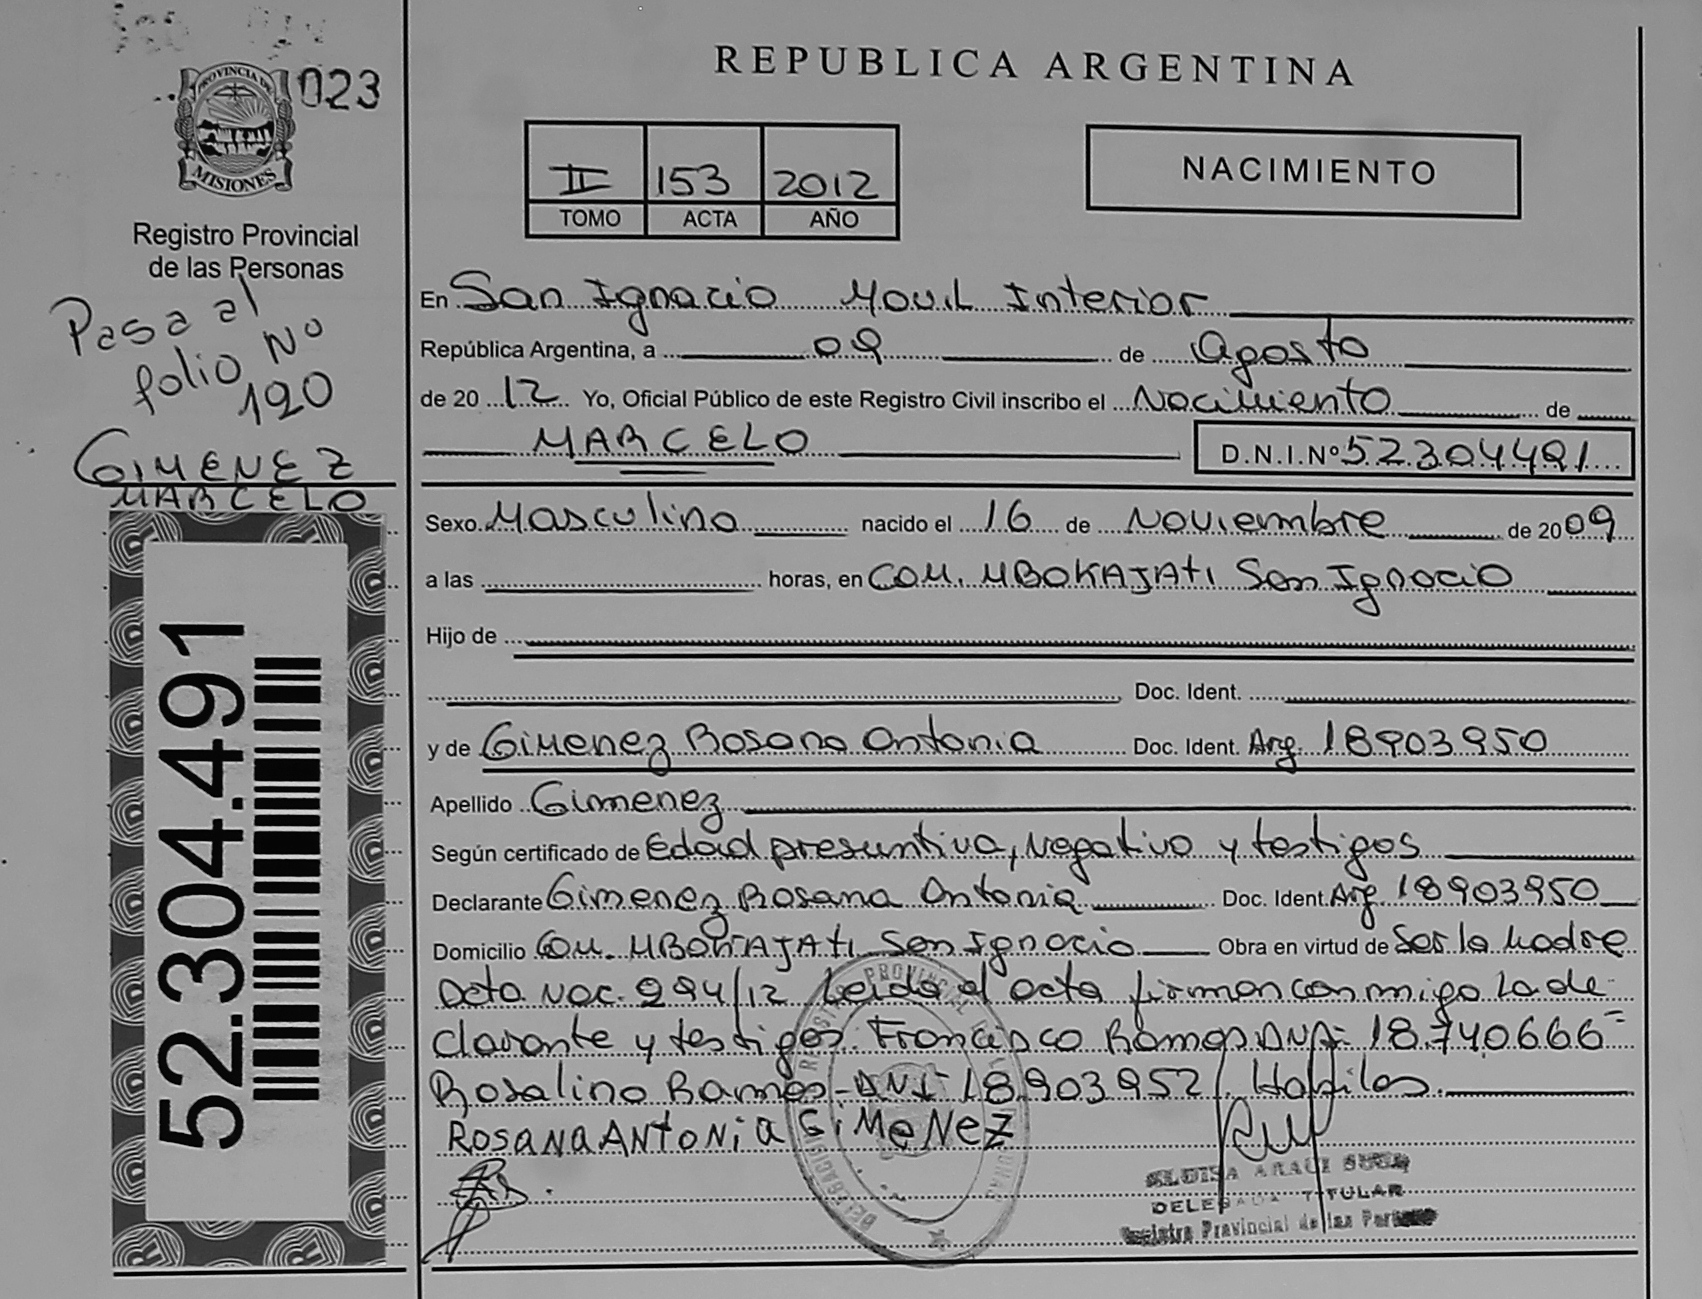 023
PROVINCIA DE
MISIONES
Registro Provincial
de las Personas
Pasa al
folio Nº
120
GIMENEZ
MARCELO
52.304.491
REPUBLICA ARGENTINA
II 153 2012
TOMO ACTA AÑO
NACIMIENTO
En San Ignacio Movil Interior
República Argentina, a 09 de Agosto
de 20 12 Yo, Oficial Público de este Registro Civil inscribo el Nacimiento de
MARCELO D.N.I.Nº 52.304.491
Sexo Masculino nacido el 16 de Noviembre de 20 09
a las horas, en COM. MBOKAJATI San Ignacio
Hijo de
Doc. Ident.
y de Gimenez Rosana Antonia Doc. Ident. Arg. 18903950
Apellido Gimenez
Según certificado de Edad presuntiva, Negativo y testigos
Declarante Gimenez Rosana Antonia Doc. Ident. Arg 18903950
Domicilio COM. MBOKAJATI San Ignacio Obra en virtud de Ser la Madre
Acta Nac. 294/12 Leida el acta firman conmigo la de
clarante y testigos. Francisco Ramos DNI- 18.740.666=
Rosalino Ramos-DNI-18.903.952/. Habiles.
ROSANA ANTONIA GIMENEZ
DELEGADA TITULAR
Registro Provincial de las Personas